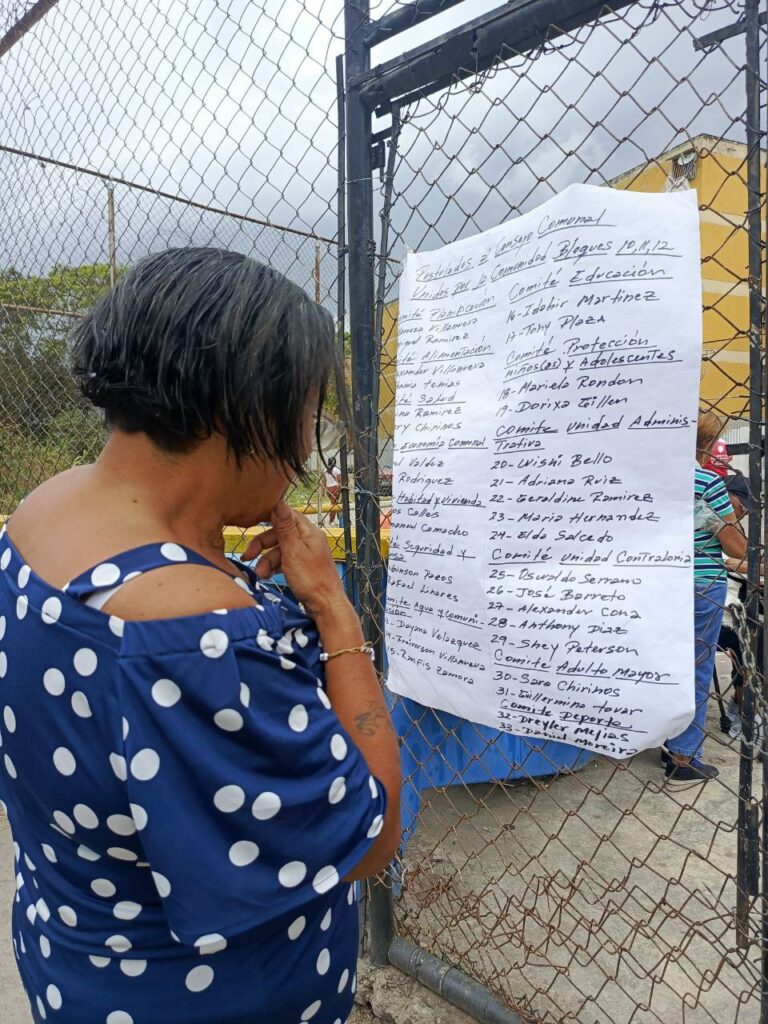 Postulados al Consejo Comunal
Unidos por la Comunidad Bloques 10, 11, 12
mité Planificación
nessa Villanueva
iguel Ramirez
té Alimentación
exander Villanueva
ité Salud
Ramirez
ry Chirinos
Economia Comunal
el Valdez
Rodriguez
Habitad y Vivienda
os Calles
Camacho
Seguridad y
binson
Rafael Linares
mite Agua y Comuni-
ción
Dayana Velazquez
Villanueva
15- Ramfis Zamora
Comité Educación
16- Idahir Martinez
17- Tony Plaza
Comité Protección
niños(as) y Adolescentes
18- Mariela Rondon
19- Dorixa Guillen
Comite Unidad Adminis-
trativa
20- Wishi Bello
21- Adriana Ruiz
22- Geraldine Ramirez
23- Maria Hernandez
24- Elda Salcedo
Comité Unidad Contraloria
25- Oswaldo Serrano
26- José Barreto
27- Alexander Cona
28- Anthony Diaz
29- Shey Peterson
Comité Adulto Mayor
30- Sara Chirinos
31- Guillermina tovar
Comite Deporte
32- Dreyler Mejias
33- Daniel Moreira